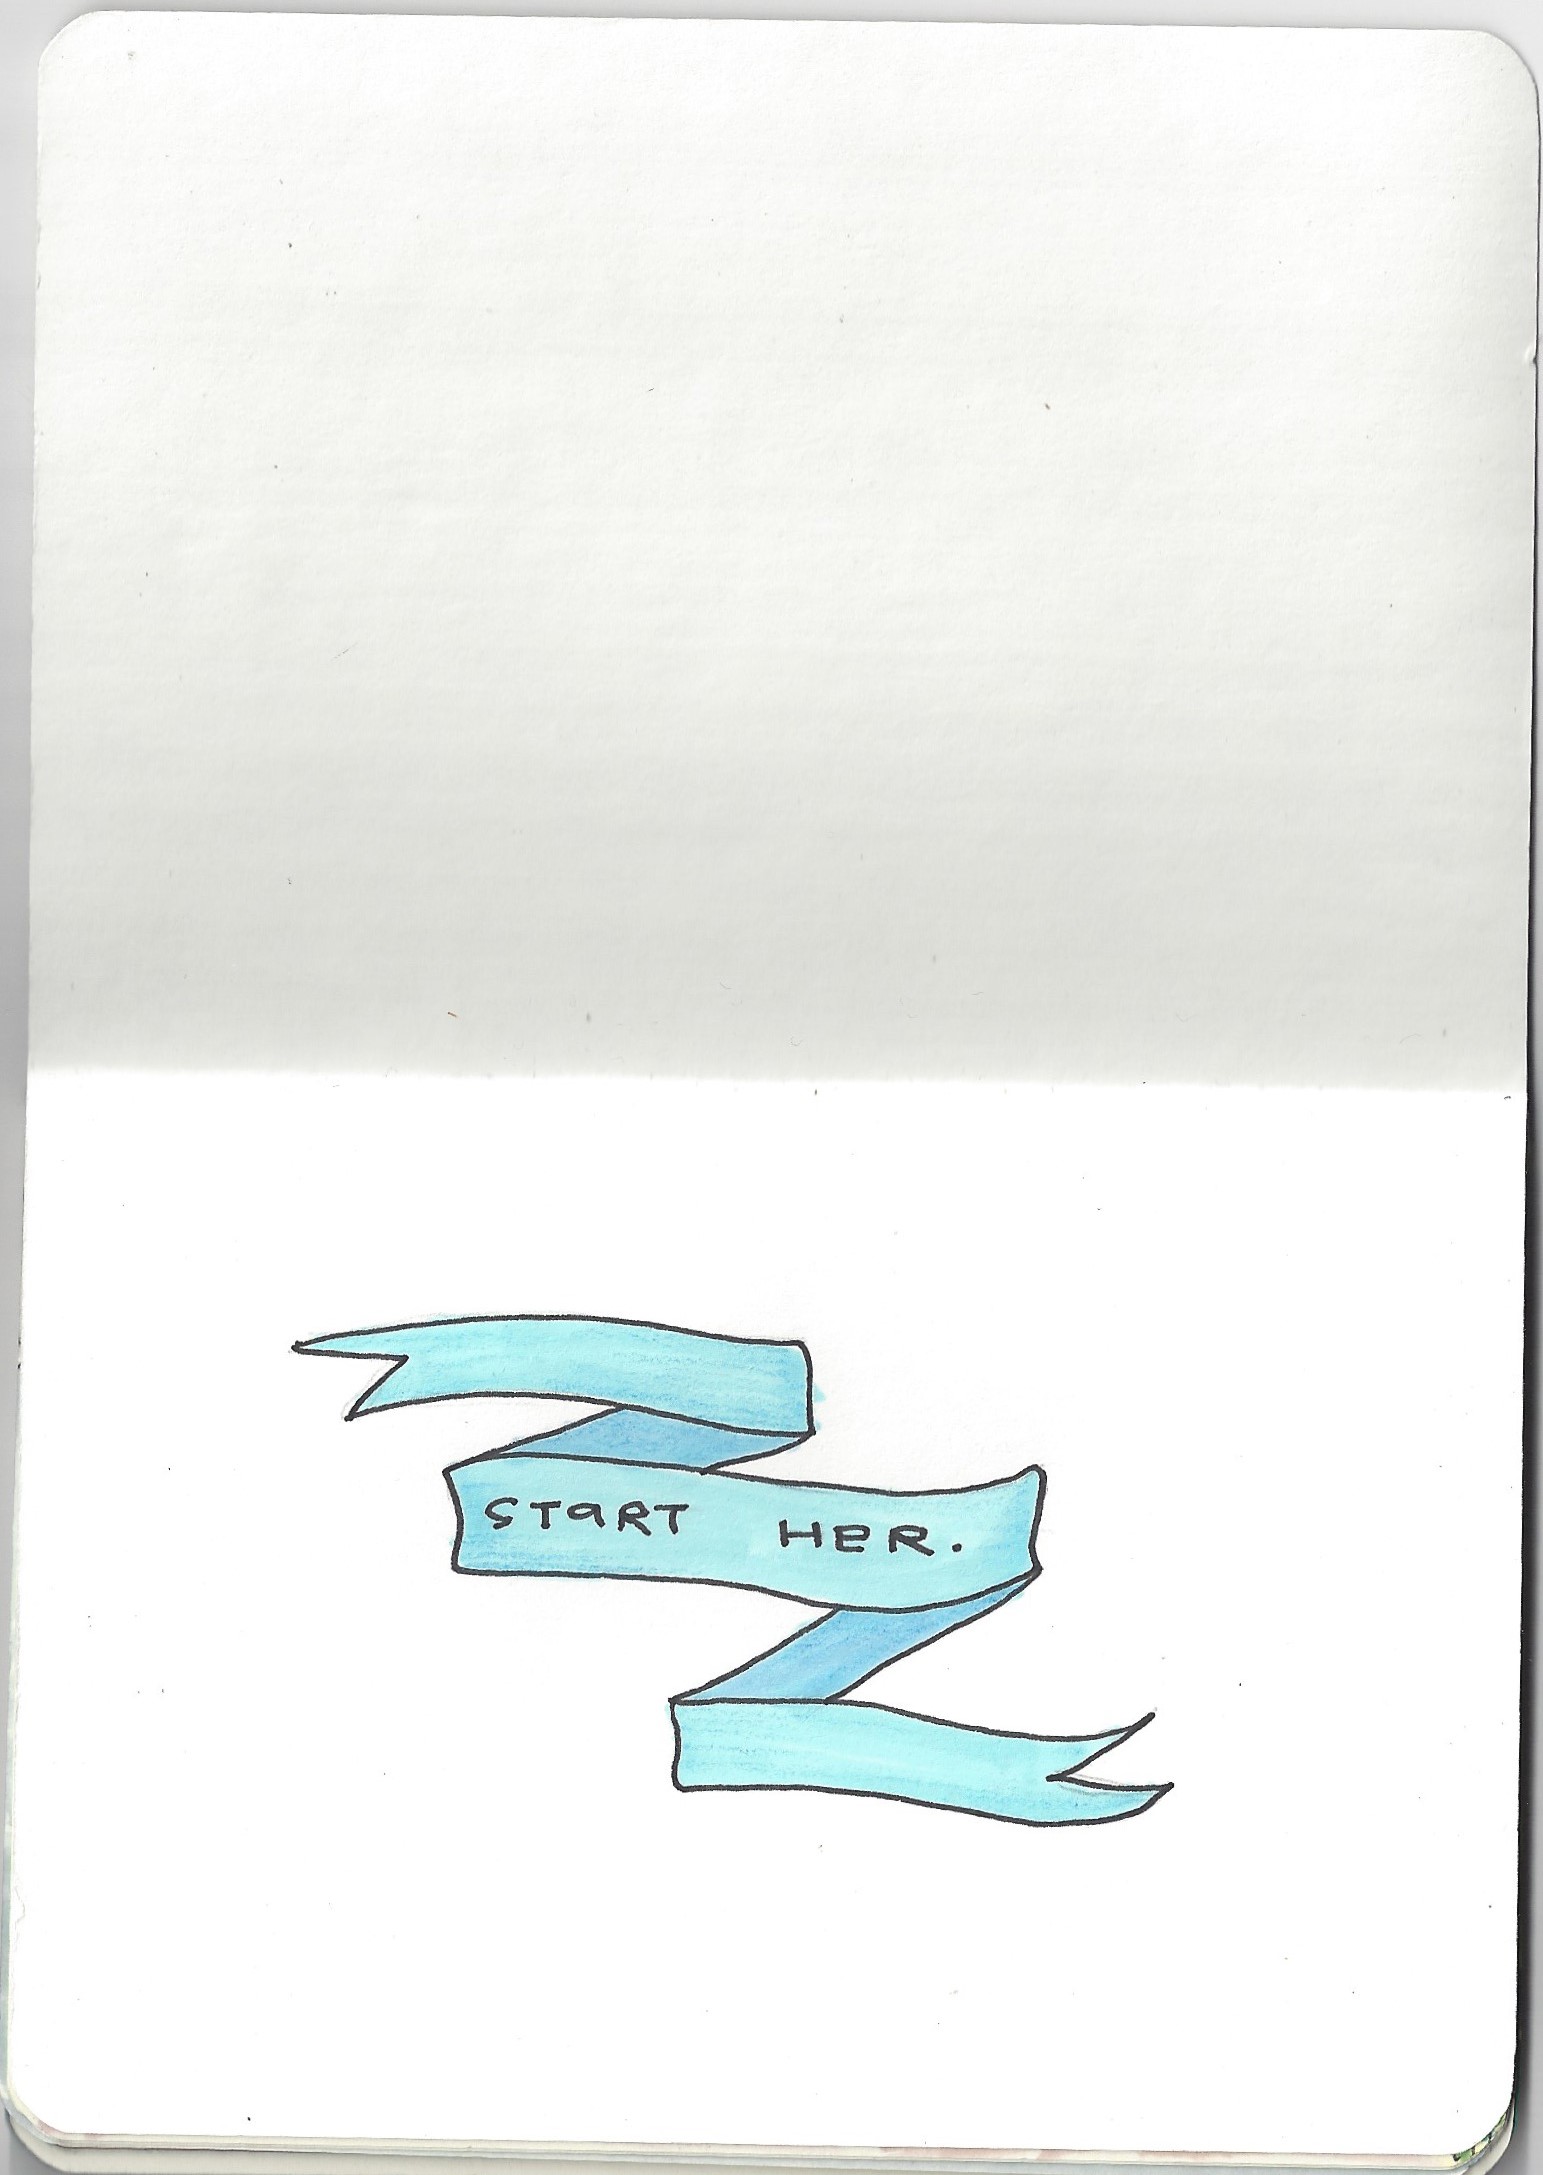 START HER.